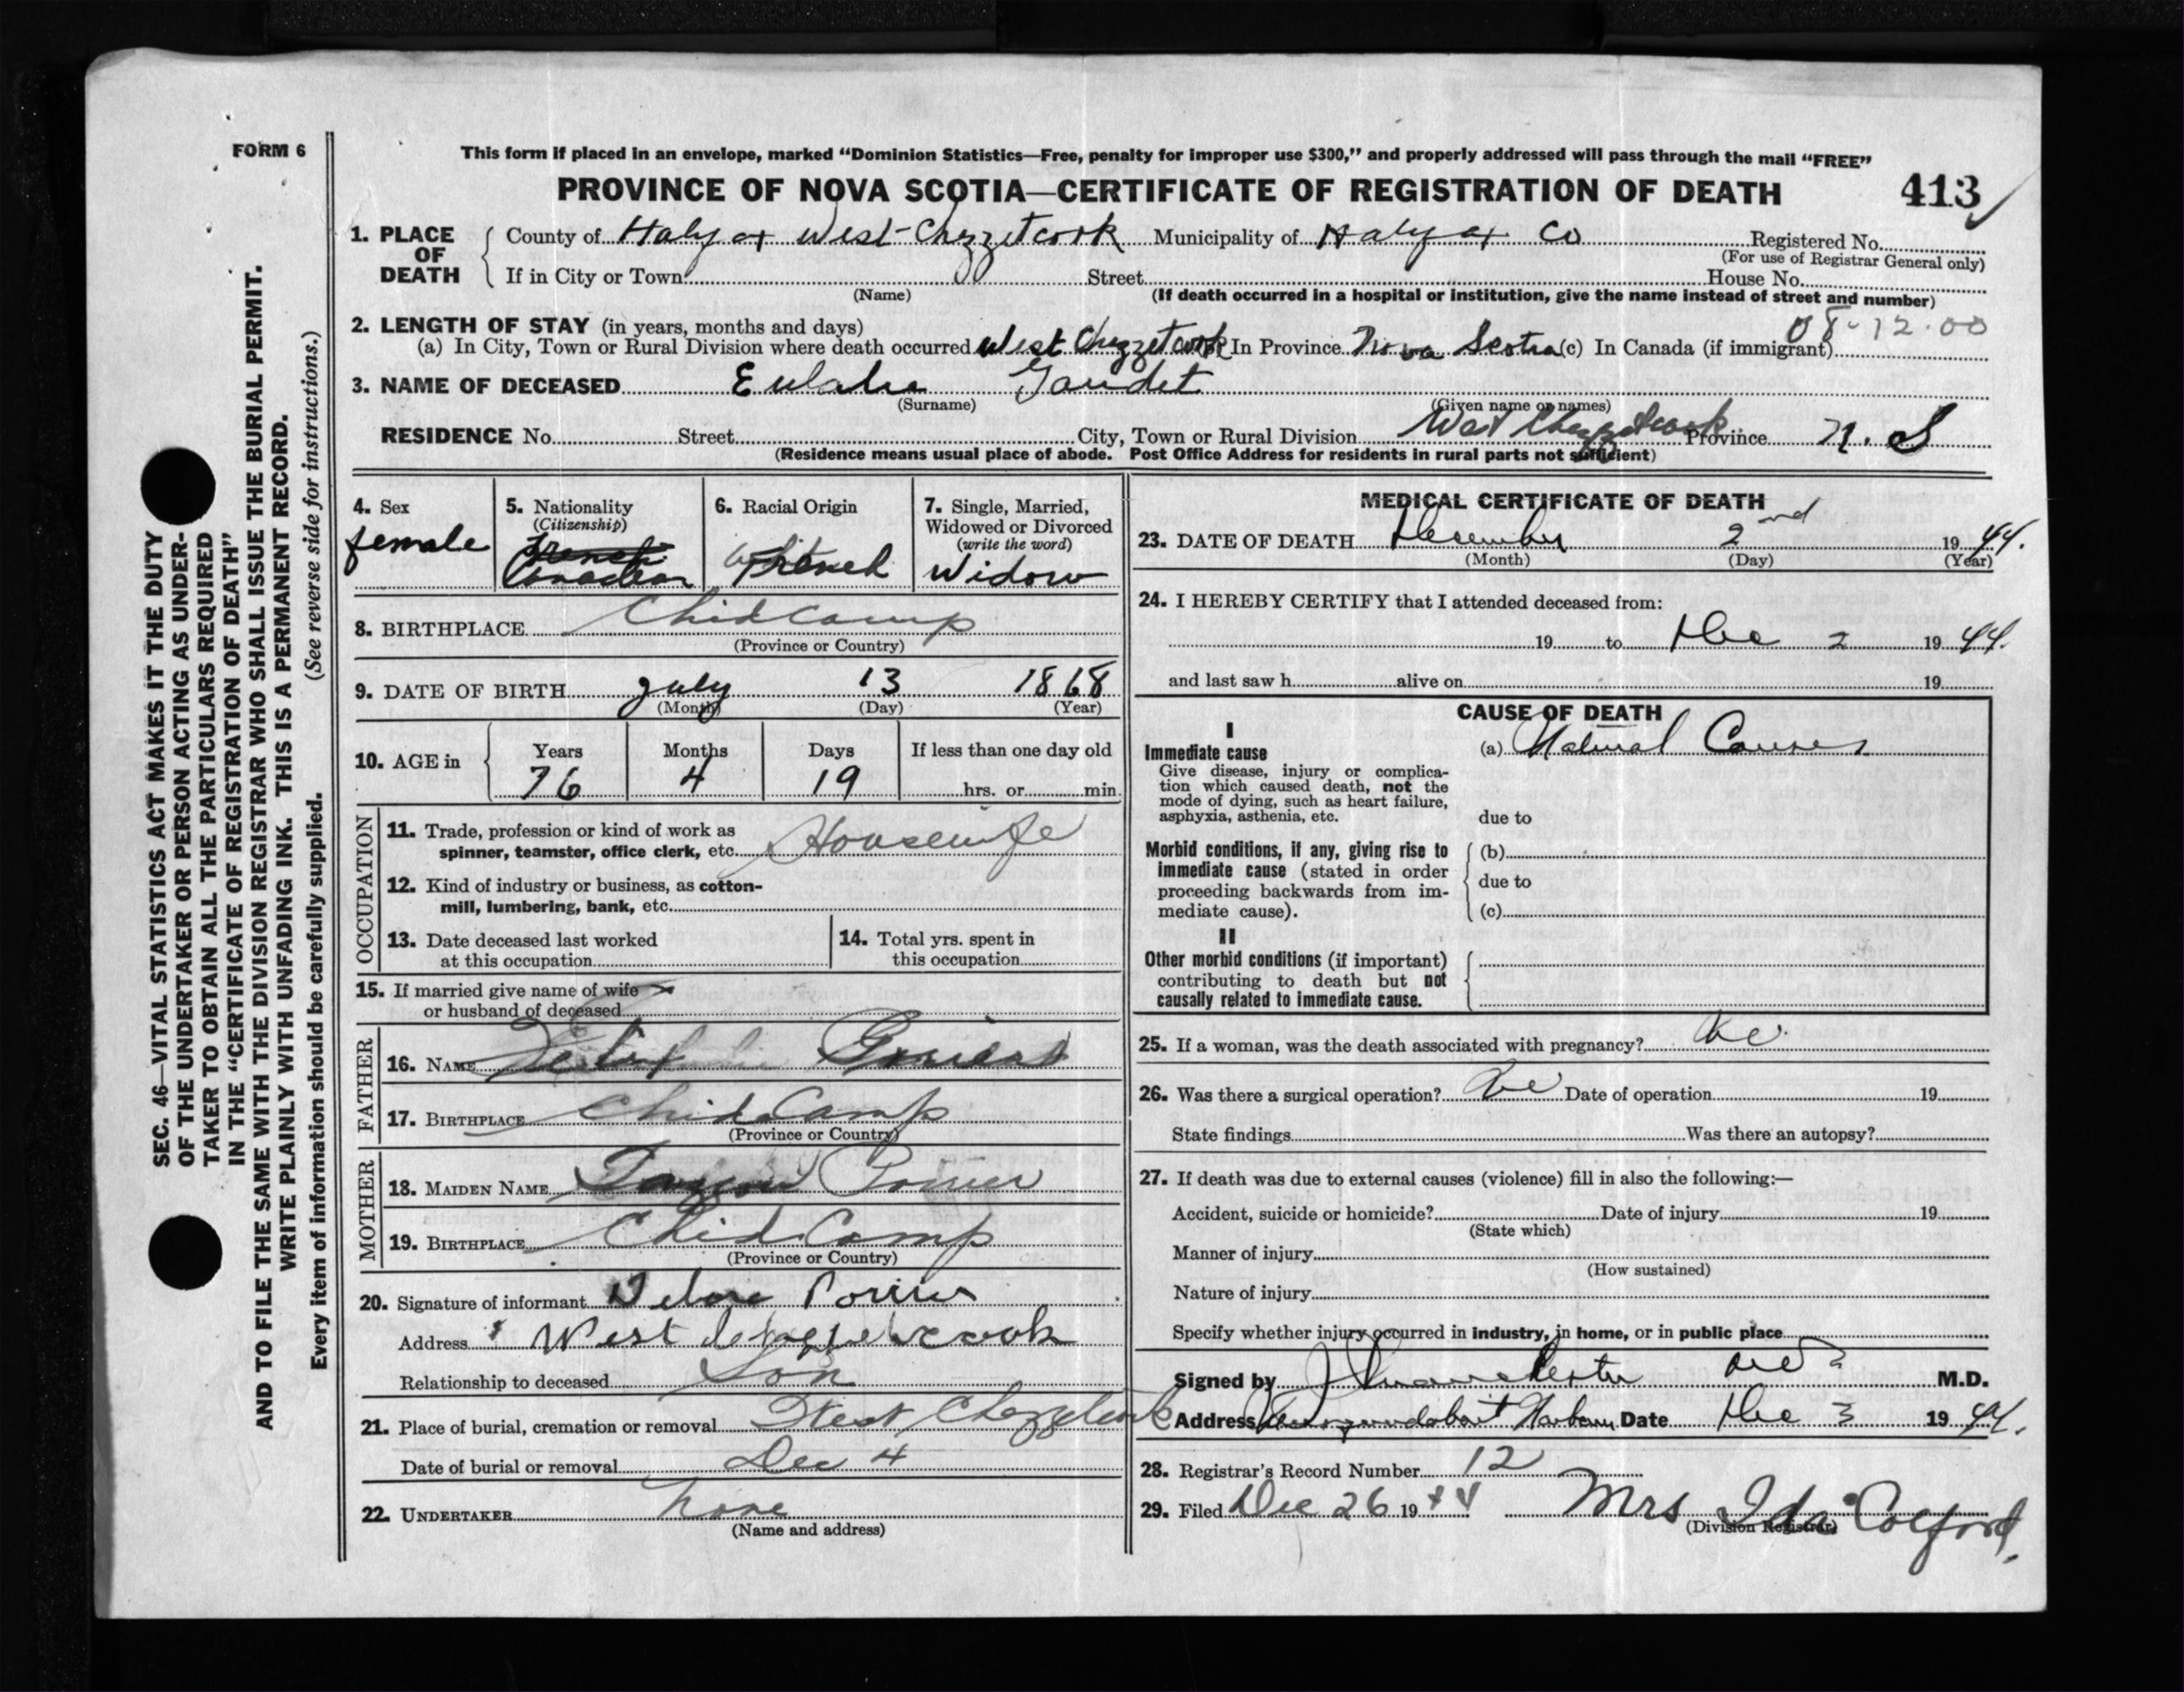 FORM 6
This form if placed in an envelope, marked “Dominion Statistics—Free, penalty for improper use $300,” and properly addressed will pass through the mail “FREE”
PROVINCE OF NOVA SCOTIA—CERTIFICATE OF REGISTRATION OF DEATH 413
1. PLACE OF DEATH County of Halyax West-Chezzetcook Municipality of Halyax Co Registered No.
(For use of Registrar General only)
If in City or Town Street House No.
(Name) (If death occurred in a hospital or institution, give the name instead of street and number)
2. LENGTH OF STAY (in years, months and days) 08-12.00
(a) In City, Town or Rural Division where death occurred West Chezzetcook (b) In Province Nova Scotia (c) In Canada (if immigrant)
3. NAME OF DECEASED Eulalie Gaudet
(Surname) (Given name or names)
RESIDENCE No. Street City, Town or Rural Division West Chezzetcook Province N. S
(Residence means usual place of abode. Post Office Address for residents in rural parts not sufficient)
4. Sex female
5. Nationality (Citizenship) French Canadian
6. Racial Origin French
7. Single, Married, Widowed or Divorced (write the word) Widow
8. BIRTHPLACE Chidcamp
(Province or Country)
9. DATE OF BIRTH July 13 1868
(Month) (Day) (Year)
10. AGE in Years 76 Months 4 Days 19 If less than one day old hrs. or min.
OCCUPATION
11. Trade, profession or kind of work as spinner, teamster, office clerk, etc. Housewife
12. Kind of industry or business, as cotton-mill, lumbering, bank, etc.
13. Date deceased last worked at this occupation
14. Total yrs. spent in this occupation
15. If married give name of wife or husband of deceased
FATHER
16. NAME
17. BIRTHPLACE Chid Camp
(Province or Country)
MOTHER
18. MAIDEN NAME Poirier
19. BIRTHPLACE Chid Camp
(Province or Country)
20. Signature of informant Poirier
Address West
Relationship to deceased Son
21. Place of burial, cremation or removal West Chezzetcook
Date of burial or removal Dec 4
22. UNDERTAKER none
(Name and address)
MEDICAL CERTIFICATE OF DEATH
23. DATE OF DEATH December 2nd 1944.
(Month) (Day) (Year)
24. I HEREBY CERTIFY that I attended deceased from:
19 to Dec 2 1944.
and last saw h alive on 19
CAUSE OF DEATH
I
Immediate cause (a) Natural Causes
Give disease, injury or complica-
tion which caused death, not the
mode of dying, such as heart failure,
asphyxia, asthenia, etc. due to
Morbid conditions, if any, giving rise to (b)
immediate cause (stated in order
proceeding backwards from im- due to
mediate cause). (c)
II
Other morbid conditions (if important)
contributing to death but not
causally related to immediate cause.
25. If a woman, was the death associated with pregnancy?
26. Was there a surgical operation? Date of operation 19
State findings Was there an autopsy?
27. If death was due to external causes (violence) fill in also the following:—
Accident, suicide or homicide? Date of injury 19
(State which)
Manner of injury
(How sustained)
Nature of injury
Specify whether injury occurred in industry, in home, or in public place
Signed by M.D.
Address Musquodoboit Harbour Date Dec 3 1944.
28. Registrar's Record Number 12
29. Filed Dec 26 1944 Mrs Ida Colford.
(Division Registrar)
SEC. 46—VITAL STATISTICS ACT MAKES IT THE DUTY
OF THE UNDERTAKER OR PERSON ACTING AS UNDER-
TAKER TO OBTAIN ALL THE PARTICULARS REQUIRED
IN THE “CERTIFICATE OF REGISTRATION OF DEATH”
AND TO FILE THE SAME WITH THE DIVISION REGISTRAR WHO SHALL ISSUE THE BURIAL PERMIT.
WRITE PLAINLY WITH UNFADING INK. THIS IS A PERMANENT RECORD.
Every item of information should be carefully supplied. (See reverse side for instructions.)